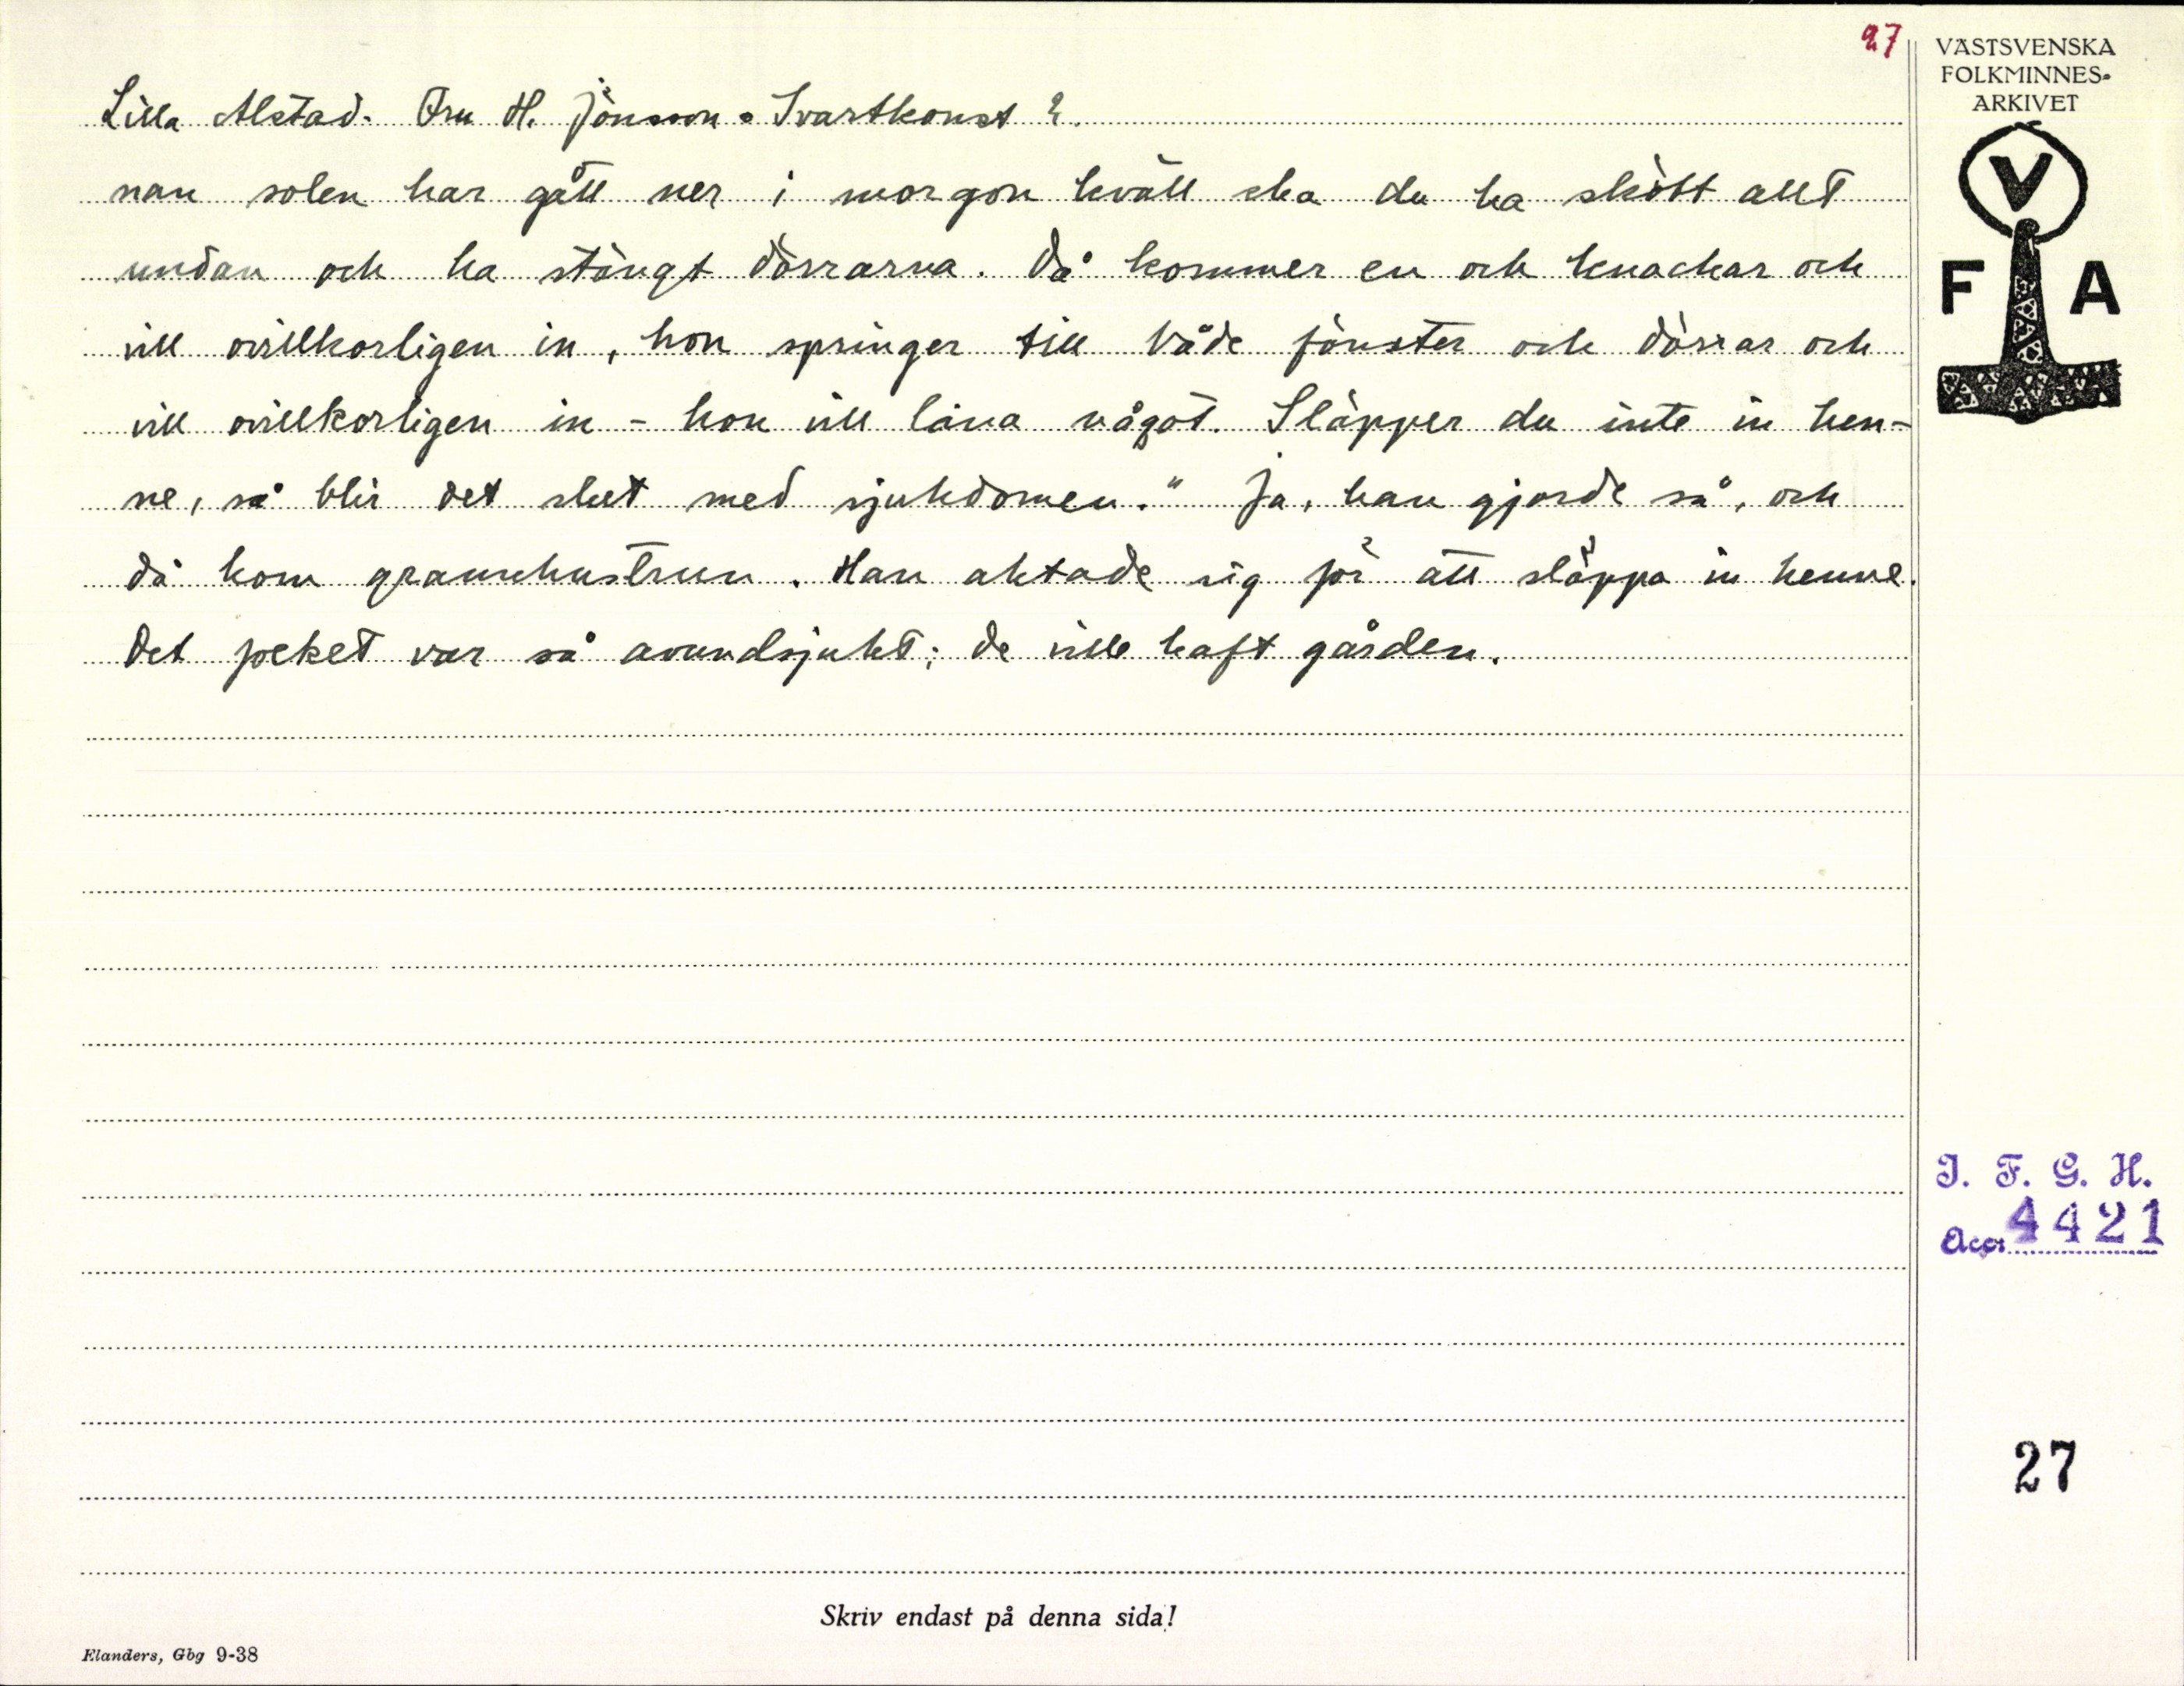 27
Lilla Alstad. Fru H. Jönsson. Svartkonst 2.
nan solen har gått ner i morgon kväll ska du ha skött allt
undan och ha stängt dörrarna. Då kommer en och knackar och
vill ovillkorligen in, hon springer till både fönster och dörrar och
vill ovillkorligen in - hon vill låna något. Släpper du inte in hen-
ne, så blir det slut med sjukdomen." Ja, han gjorde så, och
då kom grannhustrun. Han aktade sig för att släppa in henne.
Det peket var så avundsjukt; de ville haft gården.
VÄSTSVENSKA
FOLKMINNES-
ARKIVET
V
F A
I. F. G. H.
Acc. 4421
27
Skriv endast på denna sida!
Elanders, Gbg 9-38